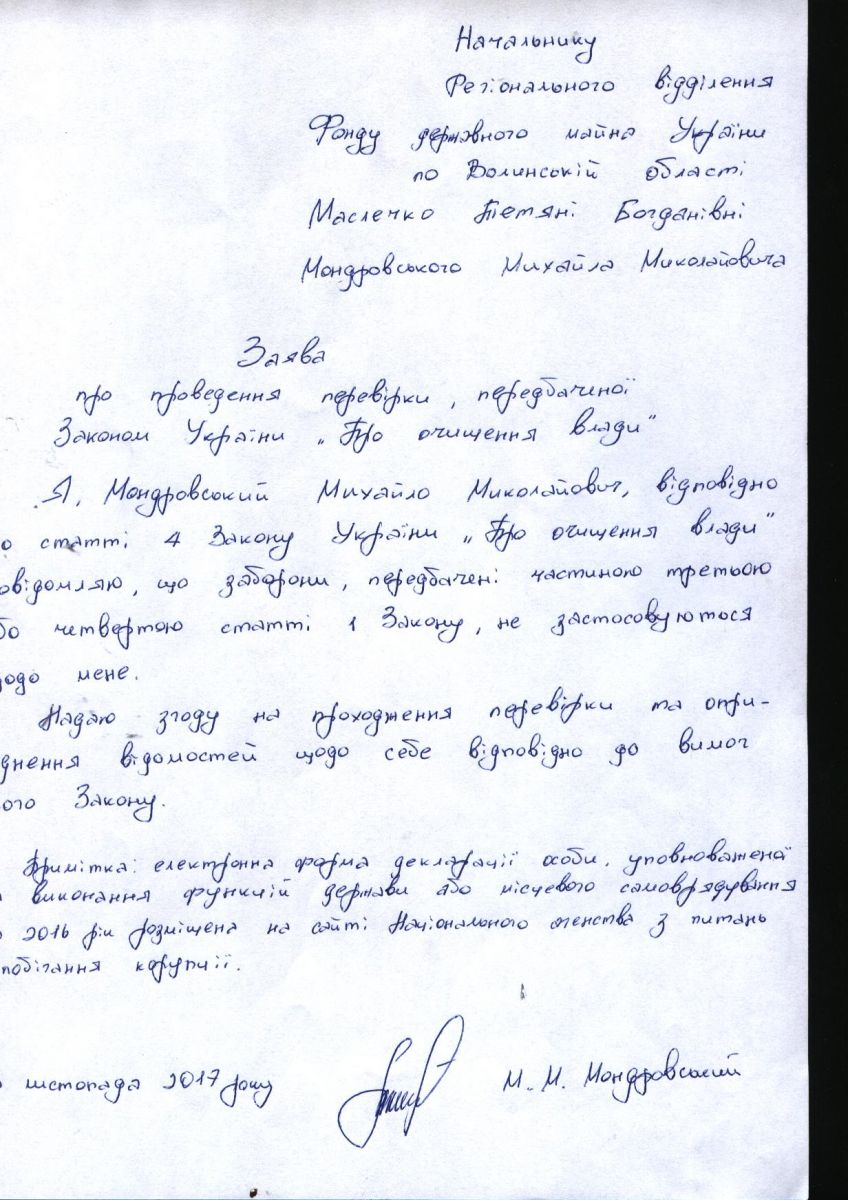 Начальнику
Регіонального відділення
Фонду державного майна України
по Волинській області
Маслечко Тетяні Богданівні
Мондровського Михайла Миколайовича
Заява
про проведення перевірки, передбаченої
Законом України „Про очищення влади"
Я, Мондровський Михайло Миколайович, відповідно
о статті 4 Закону України „Про очищення влади"
овідомляю, що заборони, передбачені частиною третьою
бо четвертою статті 1 Закону, не застосовуються
одо мене.
Надаю згоду на проходження перевірки та опри-
днення відомостей щодо себе відповідно до вимог
ого Закону.
Примітка: електронна форма декларації особи, уповноваженої
виконання функцій держави або місцевого самоврядування
2016 рік розміщена на сайті Національного агенства з питань
побігання корупції.
листопада 2017 року М. М. Мондровський